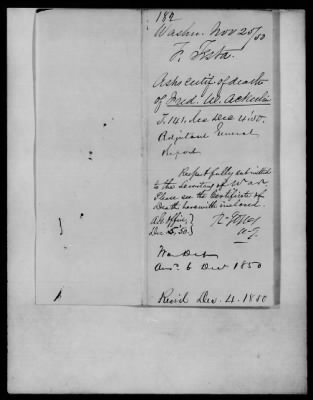 184
Washn. Nov 20/50
F. Testa.
Asks certif. of death
of Fred. W.
T. 141. Dec 4. 50.
Adjutant General
Report
Respectfully submitted
to the Secretary of War
Please see the Certificate of
Death herewith inclosed.
AG office,
Dec. 5. 50.
R. Jones
A. G.
War Dept
Ansd 6 Dec 1850
Recd. Dec. 4. 1850